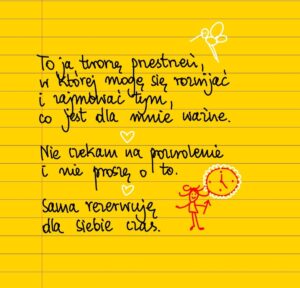 To ja tworzę przestrzeń,
w której mogę się rozwijać
i zajmować tym,
co jest dla mnie ważne.
Nie czekam na pozwolenie
i nie proszę o to.
Sama rezerwuję
dla siebie czas.